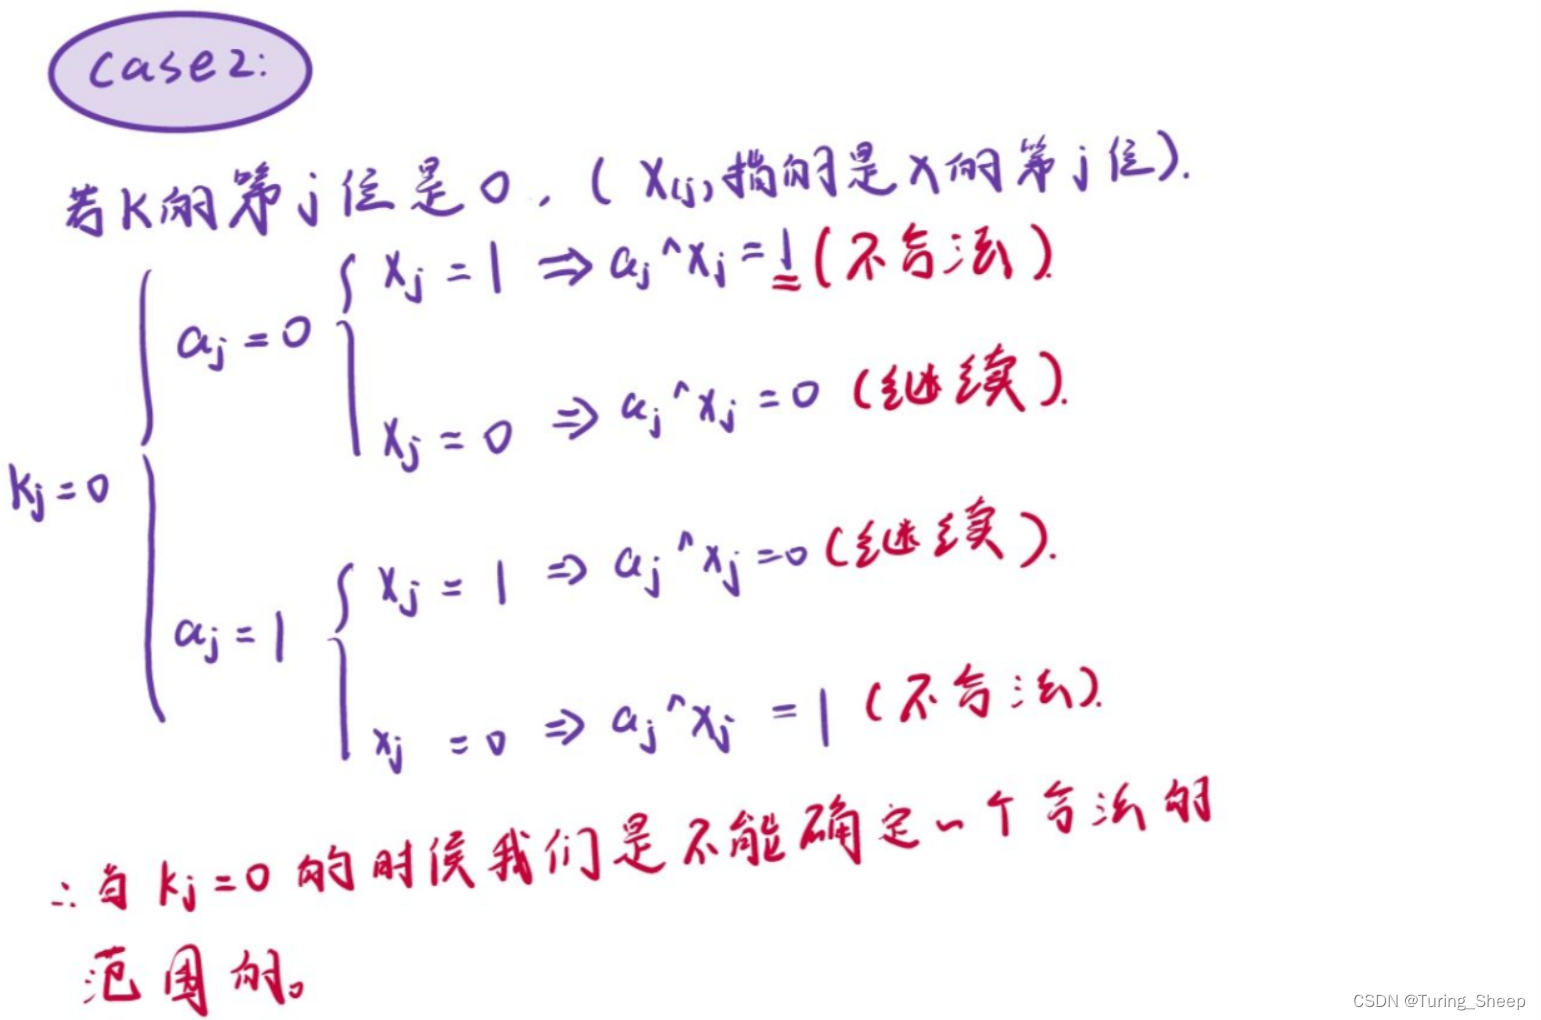 case2:
若K的第j位是0，(X(j)指的是X的第j位).
xj=1 ⇒ aj^xj=1(不合法)
aj=0
xj=0 ⇒ aj^xj=0 (继续).
kj=0
xj=1 ⇒ aj^xj=0 (继续).
aj=1
xj=0 ⇒ aj^xj=1 (不合法).
∴当kj=0的时侯我们是不能确定一个合法的
范围的。
CSDN @Turing_Sheep